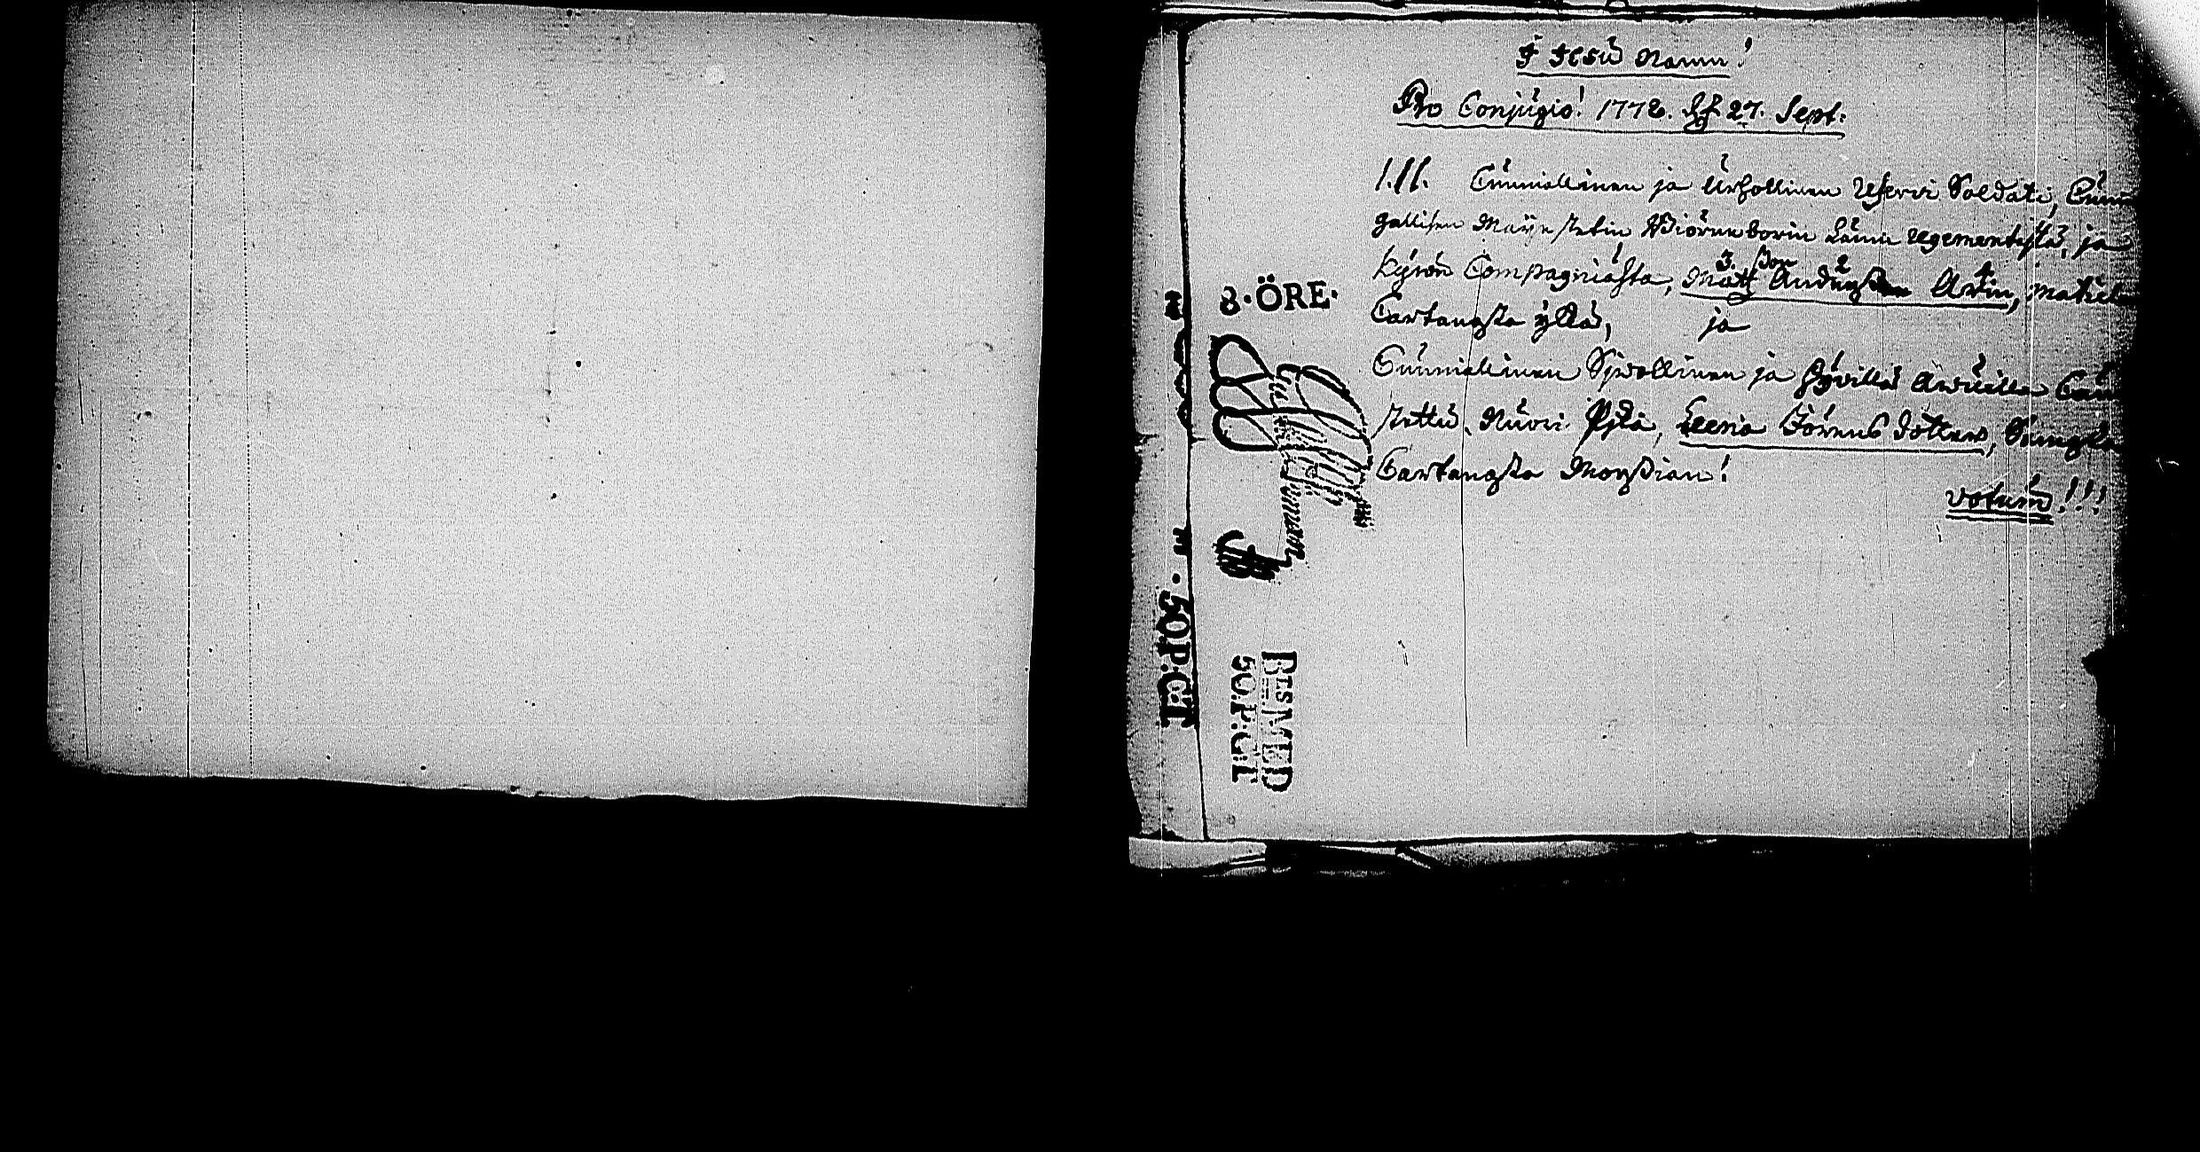 I Jesu Namn!
Pro Conjugio! 1772. d. 27. Sept:
1.11. Cunniallinen ja Urhollinen Ufervi Soldati, Cunin
gallisen Mayestetin Biörneborin Länin Regementistä, ja
Kyrön Compagniasta, Matts Andersson Arin,
Cartangsta yltä, ja
Cunniallinen Sywollinen ja hywillä awuilla Cau
stettu, Nuori Pijka, Leena Jörens dotter,
Cartangsta Morsian!
votum!!!
8·ÖRE·
50P:CT
BtsMED
50.P:CT